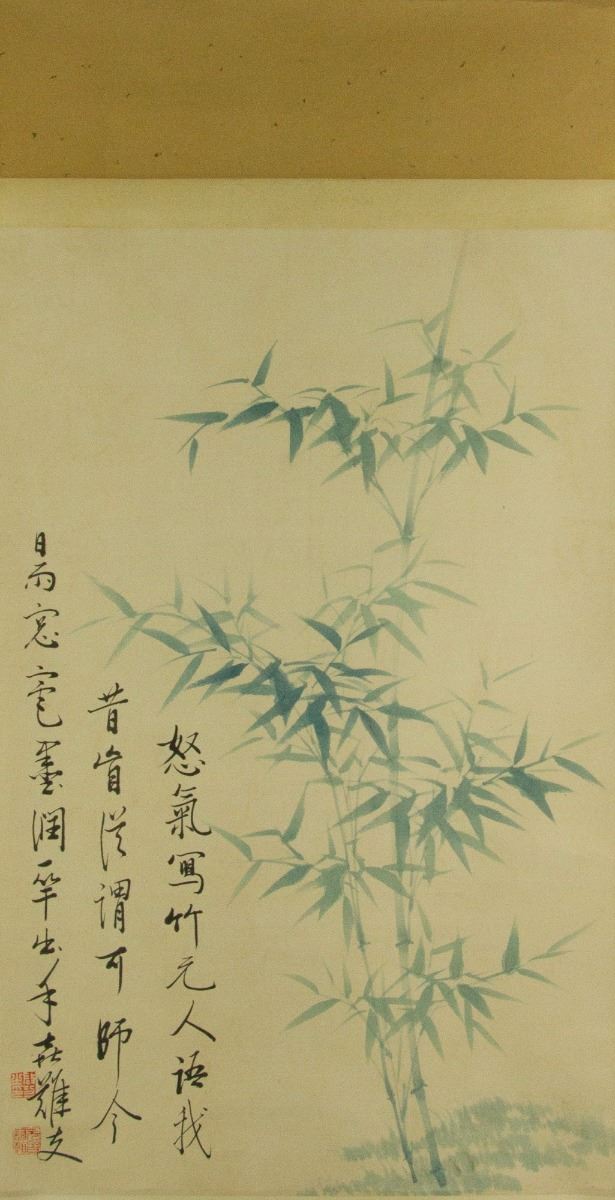 怒氣寫竹元人語我
昔曾從謂可師今
日雨窓墨潤一竿出手喜難支